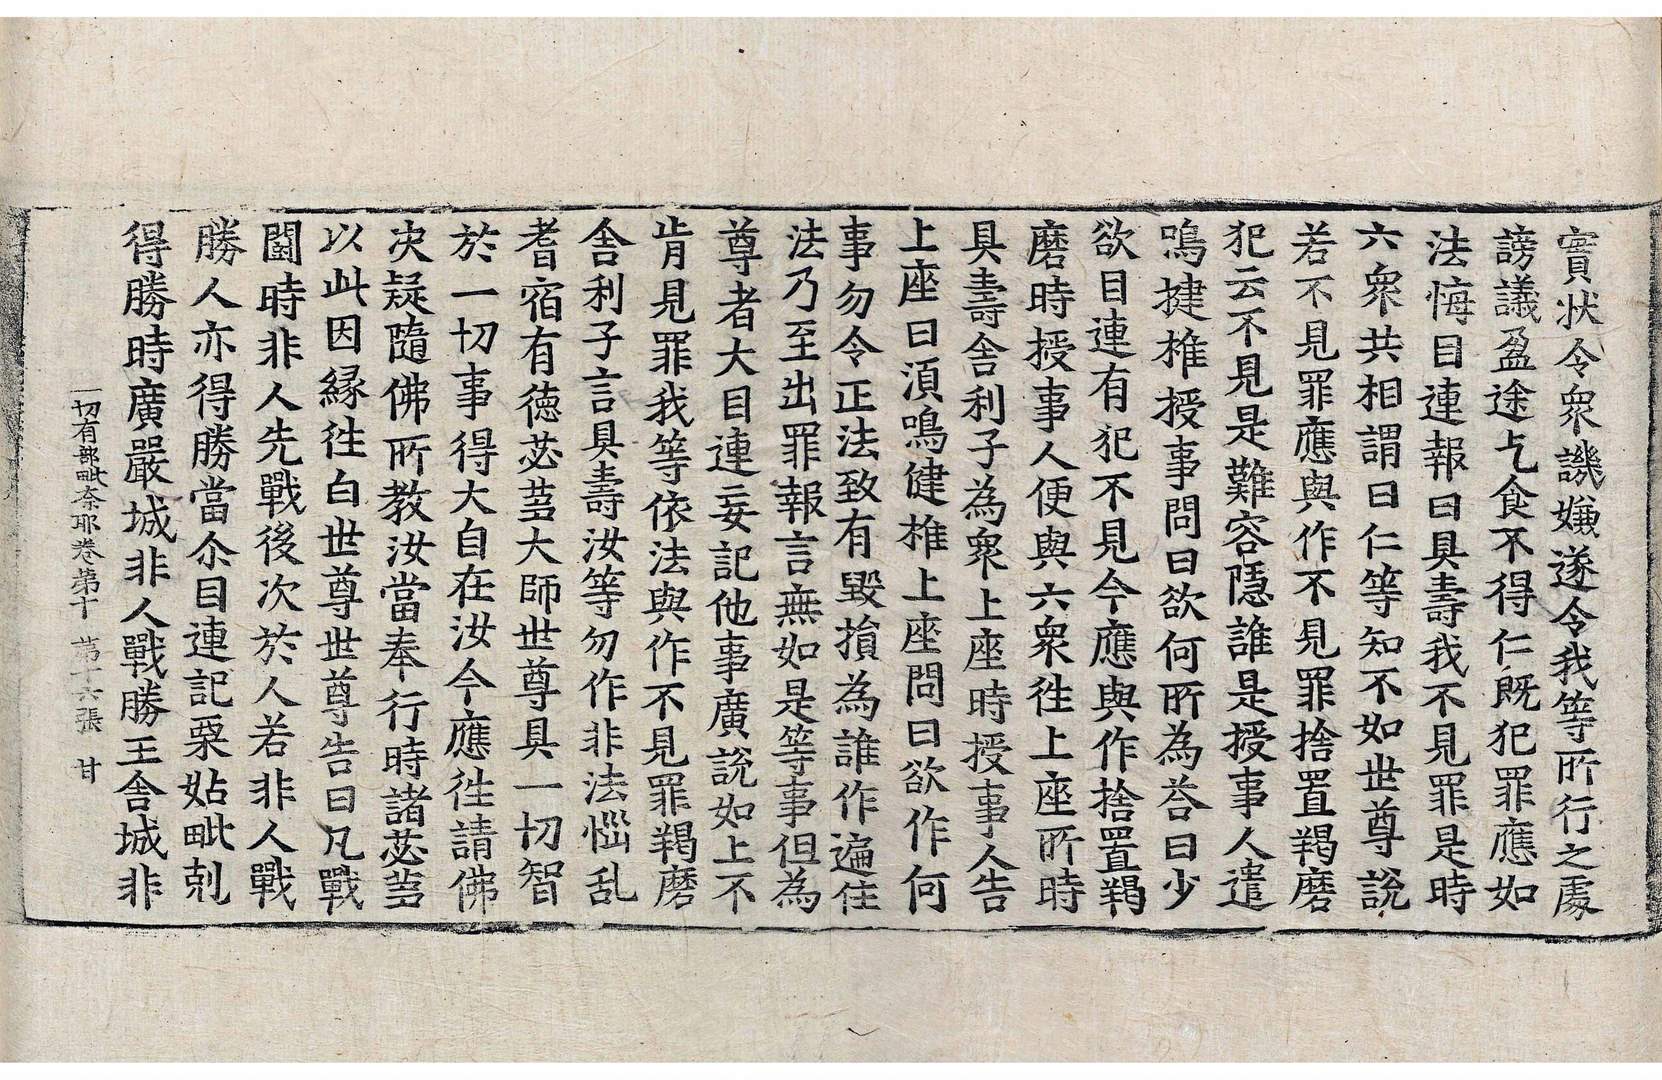 實狀令衆譏嫌遂令我等所行之處
謗議盈途乞食不得仁既犯罪應如
法悔目連報曰具壽我不見罪是時
六衆共相謂曰仁等知不如世尊說
若不見罪應與作不見罪捨置羯磨
犯云不見是難容隱誰是授事人遣
鳴揵椎授事問曰欲何所為荅曰少
欲目連有犯不見今應與作捨置羯
磨時授事人便與六衆徃上座所時
具壽舍利子為衆上座時授事人告
上座曰湏鳴健椎上座問曰欲作何
事勿令正法致有毀損為誰作遍住
法乃至出罪報言無如是等事但為
尊者大目連妄記他事廣說如上不
肯見罪我等依法與作不見罪羯磨
舍利子言具壽汝等勿作非法惱乱
耆宿有德苾蒭大師世尊具一切智
於一切事得大自在汝今應徃請佛
决疑隨佛所教汝當奉行時諸苾蒭
以此因緣徃白世尊世尊告曰凡戰
鬪時非人先戰後次於人若非人戰
勝人亦得勝當尒目連記栗姑毗剋
得勝時廣嚴城非人戰勝王舍城非
一切有部毗奈耶卷第十 第十六張 甘